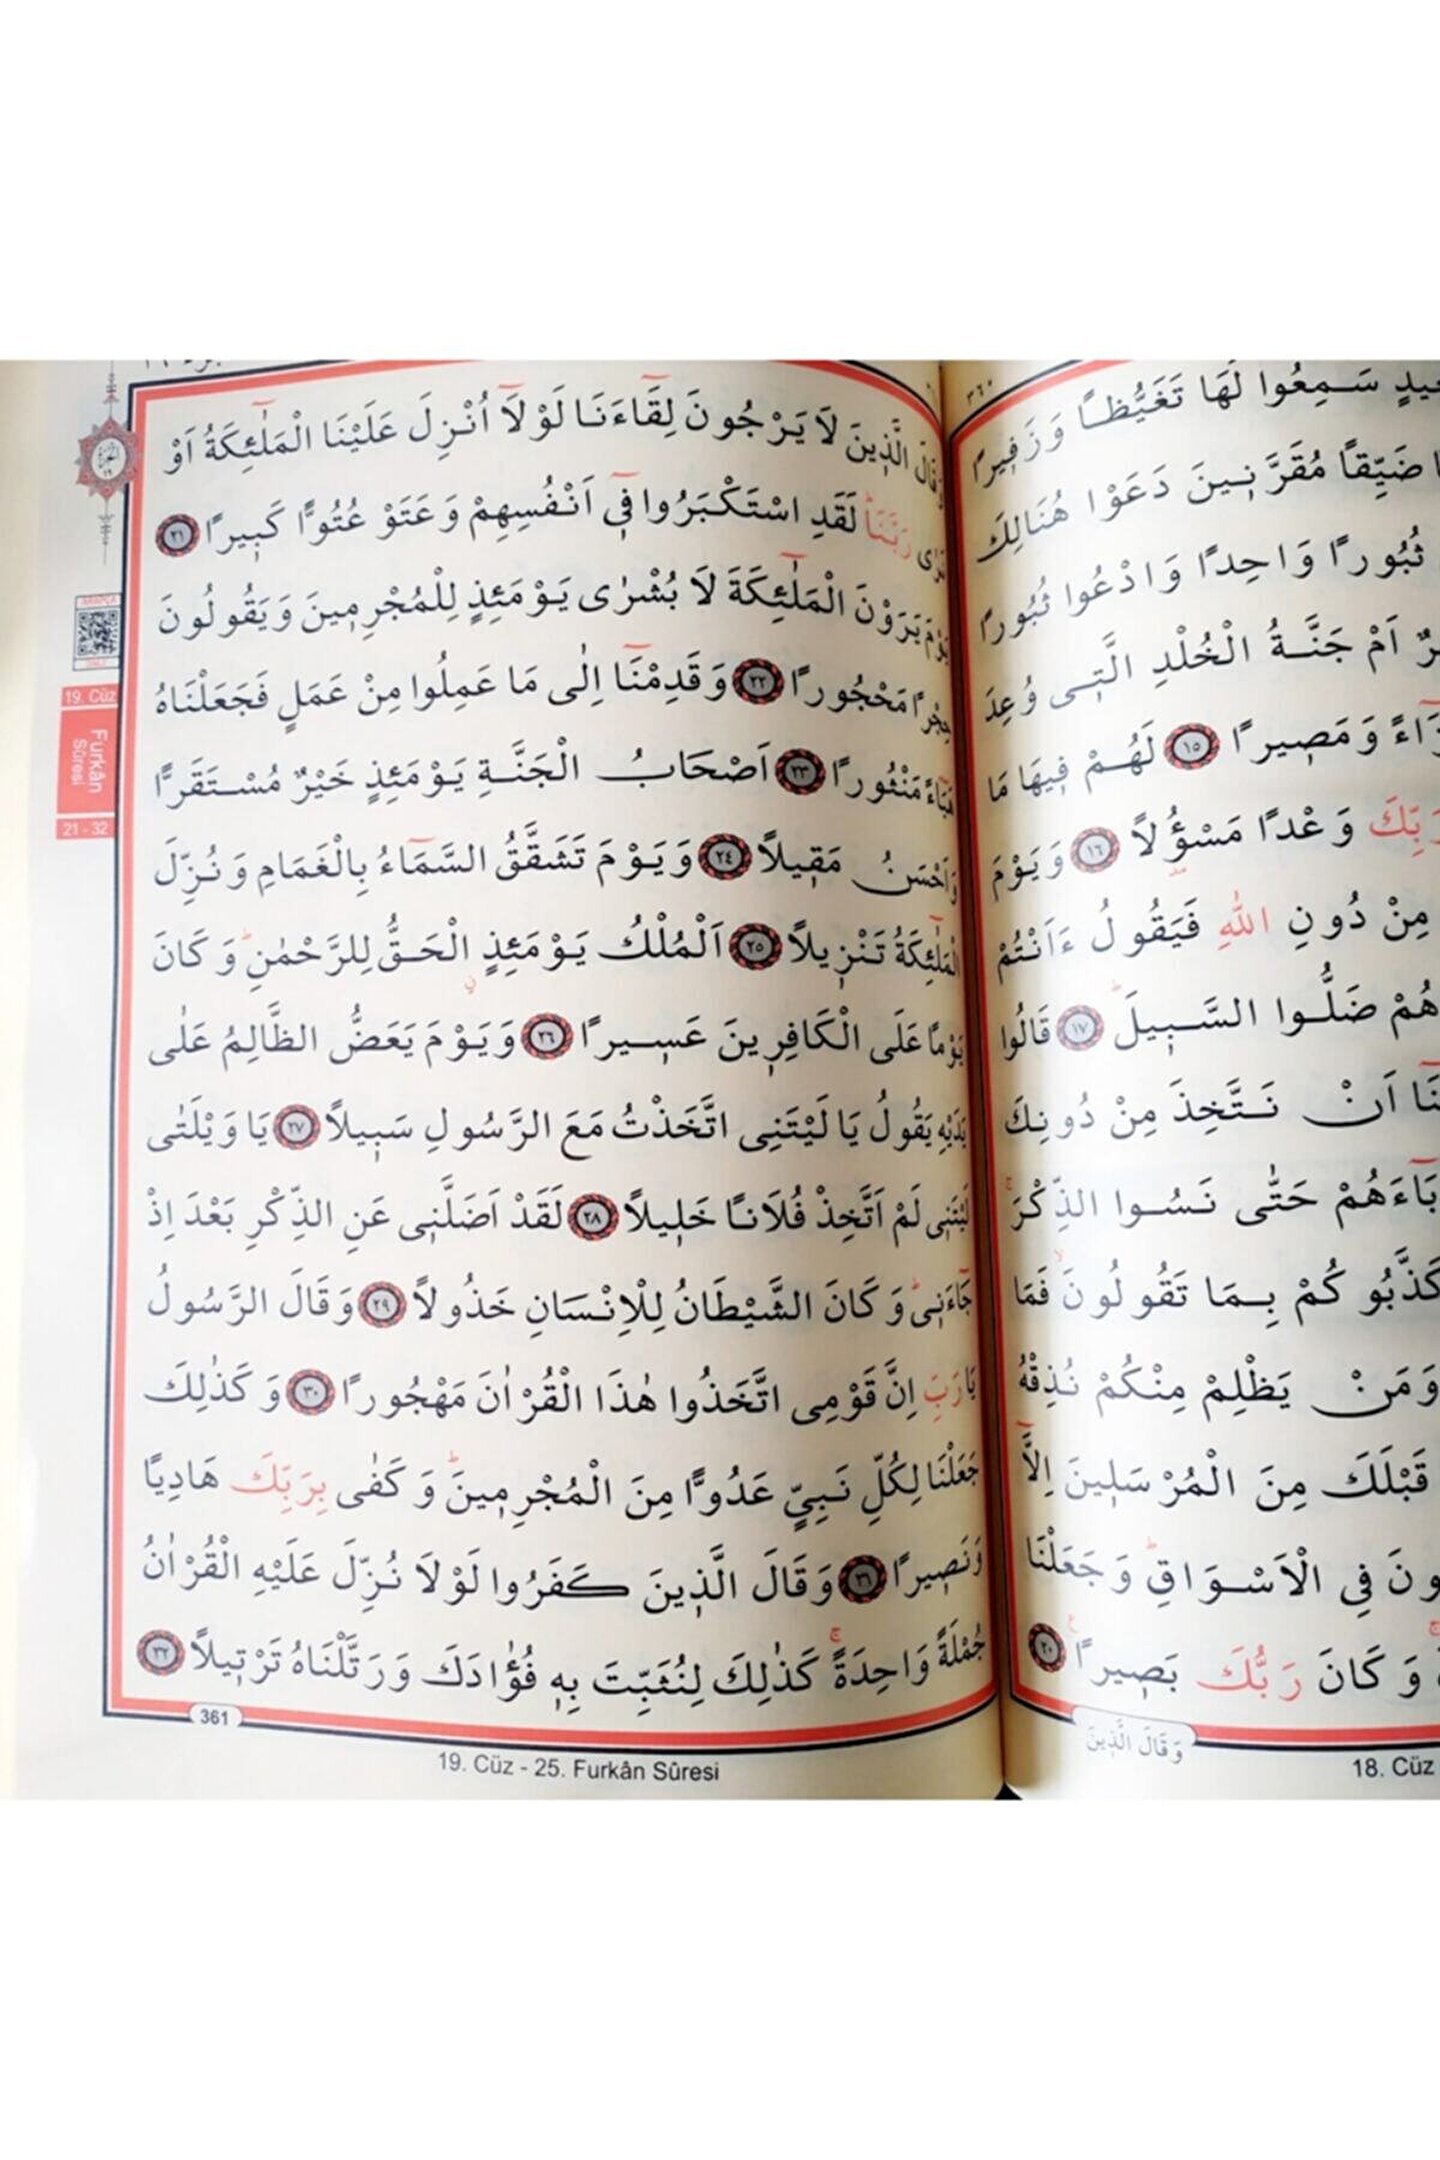 ٣٦٠
عيدٍ سَمِعُوا لَهَا تَغَيُّظاً وَزَفٖيراً
ضَيِّقاً مُقَرَّنٖينَ دَعَوْا هُنَالِكَ
ثُبُوراً وَاحِداً وَادْعُوا ثُبُوراً
اَمْ جَنَّةُ الْخُلْدِ الَّتٖى وُعِدَ
وَمَصٖيراً ١٥ لَهُمْ فٖيهَا مَا
رَبِّكَ وَعْداً مَسْؤُ۫لاً ١٦ وَيَوْمَ
مِنْ دُونِ اللّٰهِ فَيَقُولُ ءَاَنْتُمْ
هُمْ ضَلُّوا السَّبٖيلَۜ ١٧ قَالُوا
اَنْ نَتَّخِذَ مِنْ دُونِكَ
بَٓاءَهُمْ حَتّٰى نَسُوا الذِّكْرَۚ
كَذَّبُوكُمْ بِمَا تَقُولُونَۙ فَمَا
وَمَنْ يَظْلِمْ مِنْكُمْ نُذِقْهُ
قَبْلَكَ مِنَ الْمُرْسَلٖينَ اِلَّٓا
ونَ فِى الْاَسْوَاقِۜ وَجَعَلْنَا
وَكَانَ رَبُّكَ بَصٖيراً ٢٠
وَقَالَ الَّذٖينَ
18. Cüz
وَقَالَ الَّذٖينَ لَا يَرْجُونَ لِقَٓاءَنَا لَوْلَٓا اُنْزِلَ عَلَيْنَا الْمَلٰٓئِكَةُ اَوْ
نَرٰى رَبَّنَاۜ لَقَدِ اسْتَكْبَرُوا فٖٓى اَنْفُسِهِمْ وَعَتَوْ عُتُواًّ كَبٖيراً ٢١
يَوْمَ يَرَوْنَ الْمَلٰٓئِكَةَ لَا بُشْرٰى يَوْمَئِذٍ لِلْمُجْرِمٖينَ وَيَقُولُونَ
حِجْراً مَحْجُوراً ٢٢ وَقَدِمْنَٓا اِلٰى مَا عَمِلُوا مِنْ عَمَلٍ فَجَعَلْنَاهُ
هَبَٓاءً مَنْثُوراً ٢٣ اَصْحَابُ الْجَنَّةِ يَوْمَئِذٍ خَيْرٌ مُسْتَقَراًّ
وَاَحْسَنُ مَقٖيلاً ٢٤ وَيَوْمَ تَشَقَّقُ السَّمَٓاءُ بِالْغَمَامِ وَنُزِّلَ
الْمَلٰٓئِكَةُ تَنْزٖيلاً ٢٥ اَلْمُلْكُ يَوْمَئِذٍ الْحَقُّ لِلرَّحْمٰنِۜ وَكَانَ
يَوْماً عَلَى الْكَافِرٖينَ عَسٖيراً ٢٦ وَيَوْمَ يَعَضُّ الظَّالِمُ عَلٰى
يَدَيْهِ يَقُولُ يَا لَيْتَنِى اتَّخَذْتُ مَعَ الرَّسُولِ سَبٖيلاً ٢٧ يَا وَيْلَتٰى
لَيْتَنٖى لَمْ اَتَّخِذْ فُلَاناً خَلٖيلاً ٢٨ لَقَدْ اَضَلَّنٖى عَنِ الذِّكْرِ بَعْدَ اِذْ
جَٓاءَنٖىۜ وَكَانَ الشَّيْطَانُ لِلْاِنْسَانِ خَذُولاً ٢٩ وَقَالَ الرَّسُولُ
يَا رَبِّ اِنَّ قَوْمِى اتَّخَذُوا هٰذَا الْقُرْاٰنَ مَهْجُوراً ٣٠ وَكَذٰلِكَ
جَعَلْنَا لِكُلِّ نَبِىٍّ عَدُواًّ مِنَ الْمُجْرِمٖينَۜ وَكَفٰى بِرَبِّكَ هَادِياً
وَنَصٖيراً ٣١ وَقَالَ الَّذٖينَ كَفَرُوا لَوْلَا نُزِّلَ عَلَيْهِ الْقُرْاٰنُ
جُمْلَةً وَاحِدَةًۚ كَذٰلِكَ لِنُثَبِّتَ بِهٖ فُؤٰادَكَ وَرَتَّلْنَاهُ تَرْتٖيلاً ٣٢
361
19. Cüz - 25. Furkân Sûresi
19. Cüz
Furkân
Sûresi
21 - 32